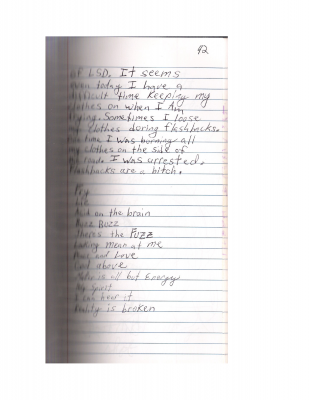 92
of LSD. It seems
even today I have a
difficult time keeping my
clothes on when I Am
frying. Sometimes I loose
my clothes doring flashbacks.
One time I was borning all
my clothes on the side of
the road. I was urrested.
Flashbacks are a bitch.
Fry
Acid on the brain
Buzz Buzz
Theres the FUZZ
Looking mean at me
Peace and Love
God above
Who is all but Energy
My Spirit
I can hear it
Reality is broken